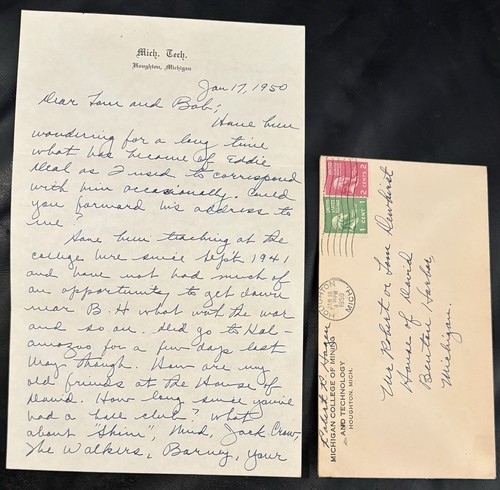 Mich. Tech.
Houghton, Michigan
Jan 17, 1950
Dear Tom and Bob;
Have been
wondering for a long time
what has become of Eddie
Deal as I used to correspond
with him occasionally. Could
you forward his address to
me?
Have been teaching at the
college here since Sept 1941
and have not had much of
an opportunity to get down
near B.H what with the war
and so on. Did go to Kal-
amazoo for a few days last
May though. How are my
old friends at the House of
David. How long since you've
had a ball club? What
about "Shine", Mud, Jack Crow,
The Walkers, Barney, your
2 CENTS 2
1 CENT 1
HOUGHTON
MICH.
1950
Robert R. Hagen
MICHIGAN COLLEGE OF MINING
AND TECHNOLOGY
HOUGHTON, MICH.
Mr Robert or Tom Dewhirst
House of David
Benton Harbor,
Michigan.